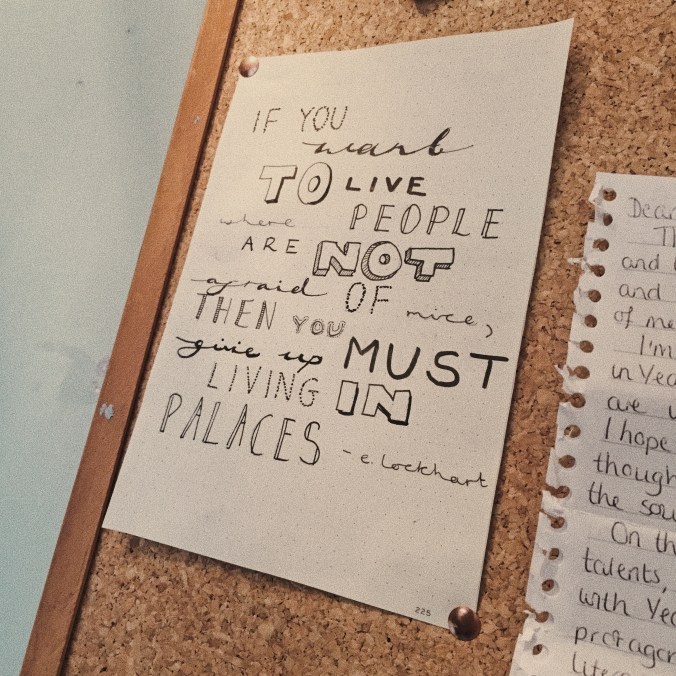 IF YOU
want
TO LIVE
where PEOPLE
ARE NOT
afraid OF mice,
THEN YOU
give up MUST
LIVING IN
PALACES - e. lockhart
225
Dear
Th
and
and
of me
I'm
in Yea
are u
I hope
though
the sou
On th
talents,
with Yea
protagon
lite